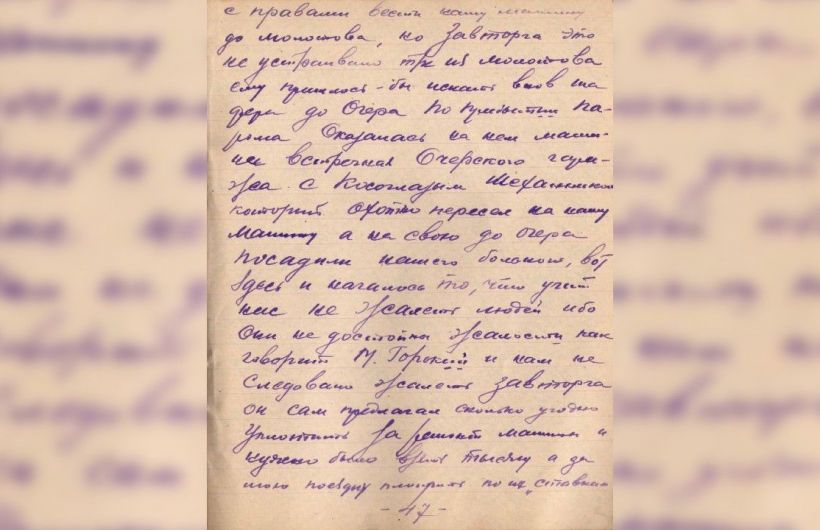 с правами вести нашу машину
до молотова, но Завторга это
не устраивало тк из молотова
ему пришлось-бы искать вновь шо
фера до Очера По прибытии Па-
рома Оказалась на нем маши-
на встречная Очерского гара-
жа. с Косоглазым Механиком
который охотно пересел на нашу
Машину а на свою до очера
Посадили нашего больного, вот
здесь и началось то, что учит
нас не Жалеть людей ибо
Они не достойны Жалости как
говорит М. Горький и нам не
Следовало Жалеть Завторга
он сам предлагал сколько угодно
Уплотить За ремонт машины и
нужно было взять тысячу а за
мою поездку плотить по их "ставкам
- 47 -